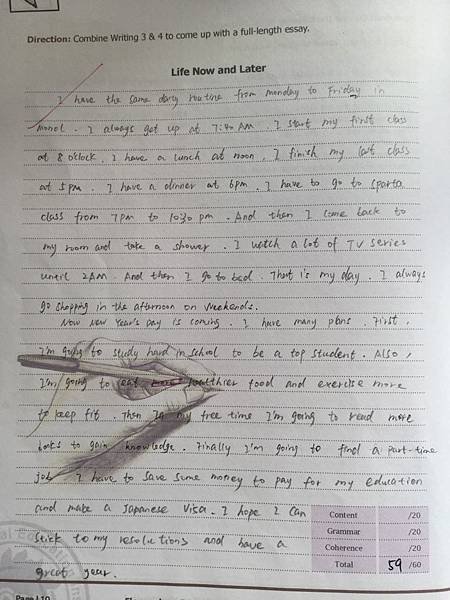 Direction: Combine Writing 3 & 4 to come up with a full-length essay.
Life Now and Later
I have the same daily routine from monday to Friday in
monol . I always get up at 7:40 AM . I start my first class
at 8 o'clock . I have a lunch at noon . I finish my last class
at 5 pm . I have a dinner at 6pm . I have to go to sparta
class from 7 pm to 10:30 pm . And then I come back to
my room and take a shower . I watch a lot of TV series
until 2AM . And then I go to bed . That is my day . I always
go shopping in the afternoon on weekends.
Now new Year's Day is coming . I have many plans . First ,
I'm going to study hard in school to be a top student . Also ,
I'm going to eat healthier food and exercise more
to keep fit . Then in my free time I'm going to read more
books to gain knowledge . Finally I'm going to find a part-time
job . I have to save some money to pay for my education
and make a Japanese visa . I hope I can
stick to my resolutions and have a
great year .
Content /20
Grammar /20
Coherence /20
Total 59 /60